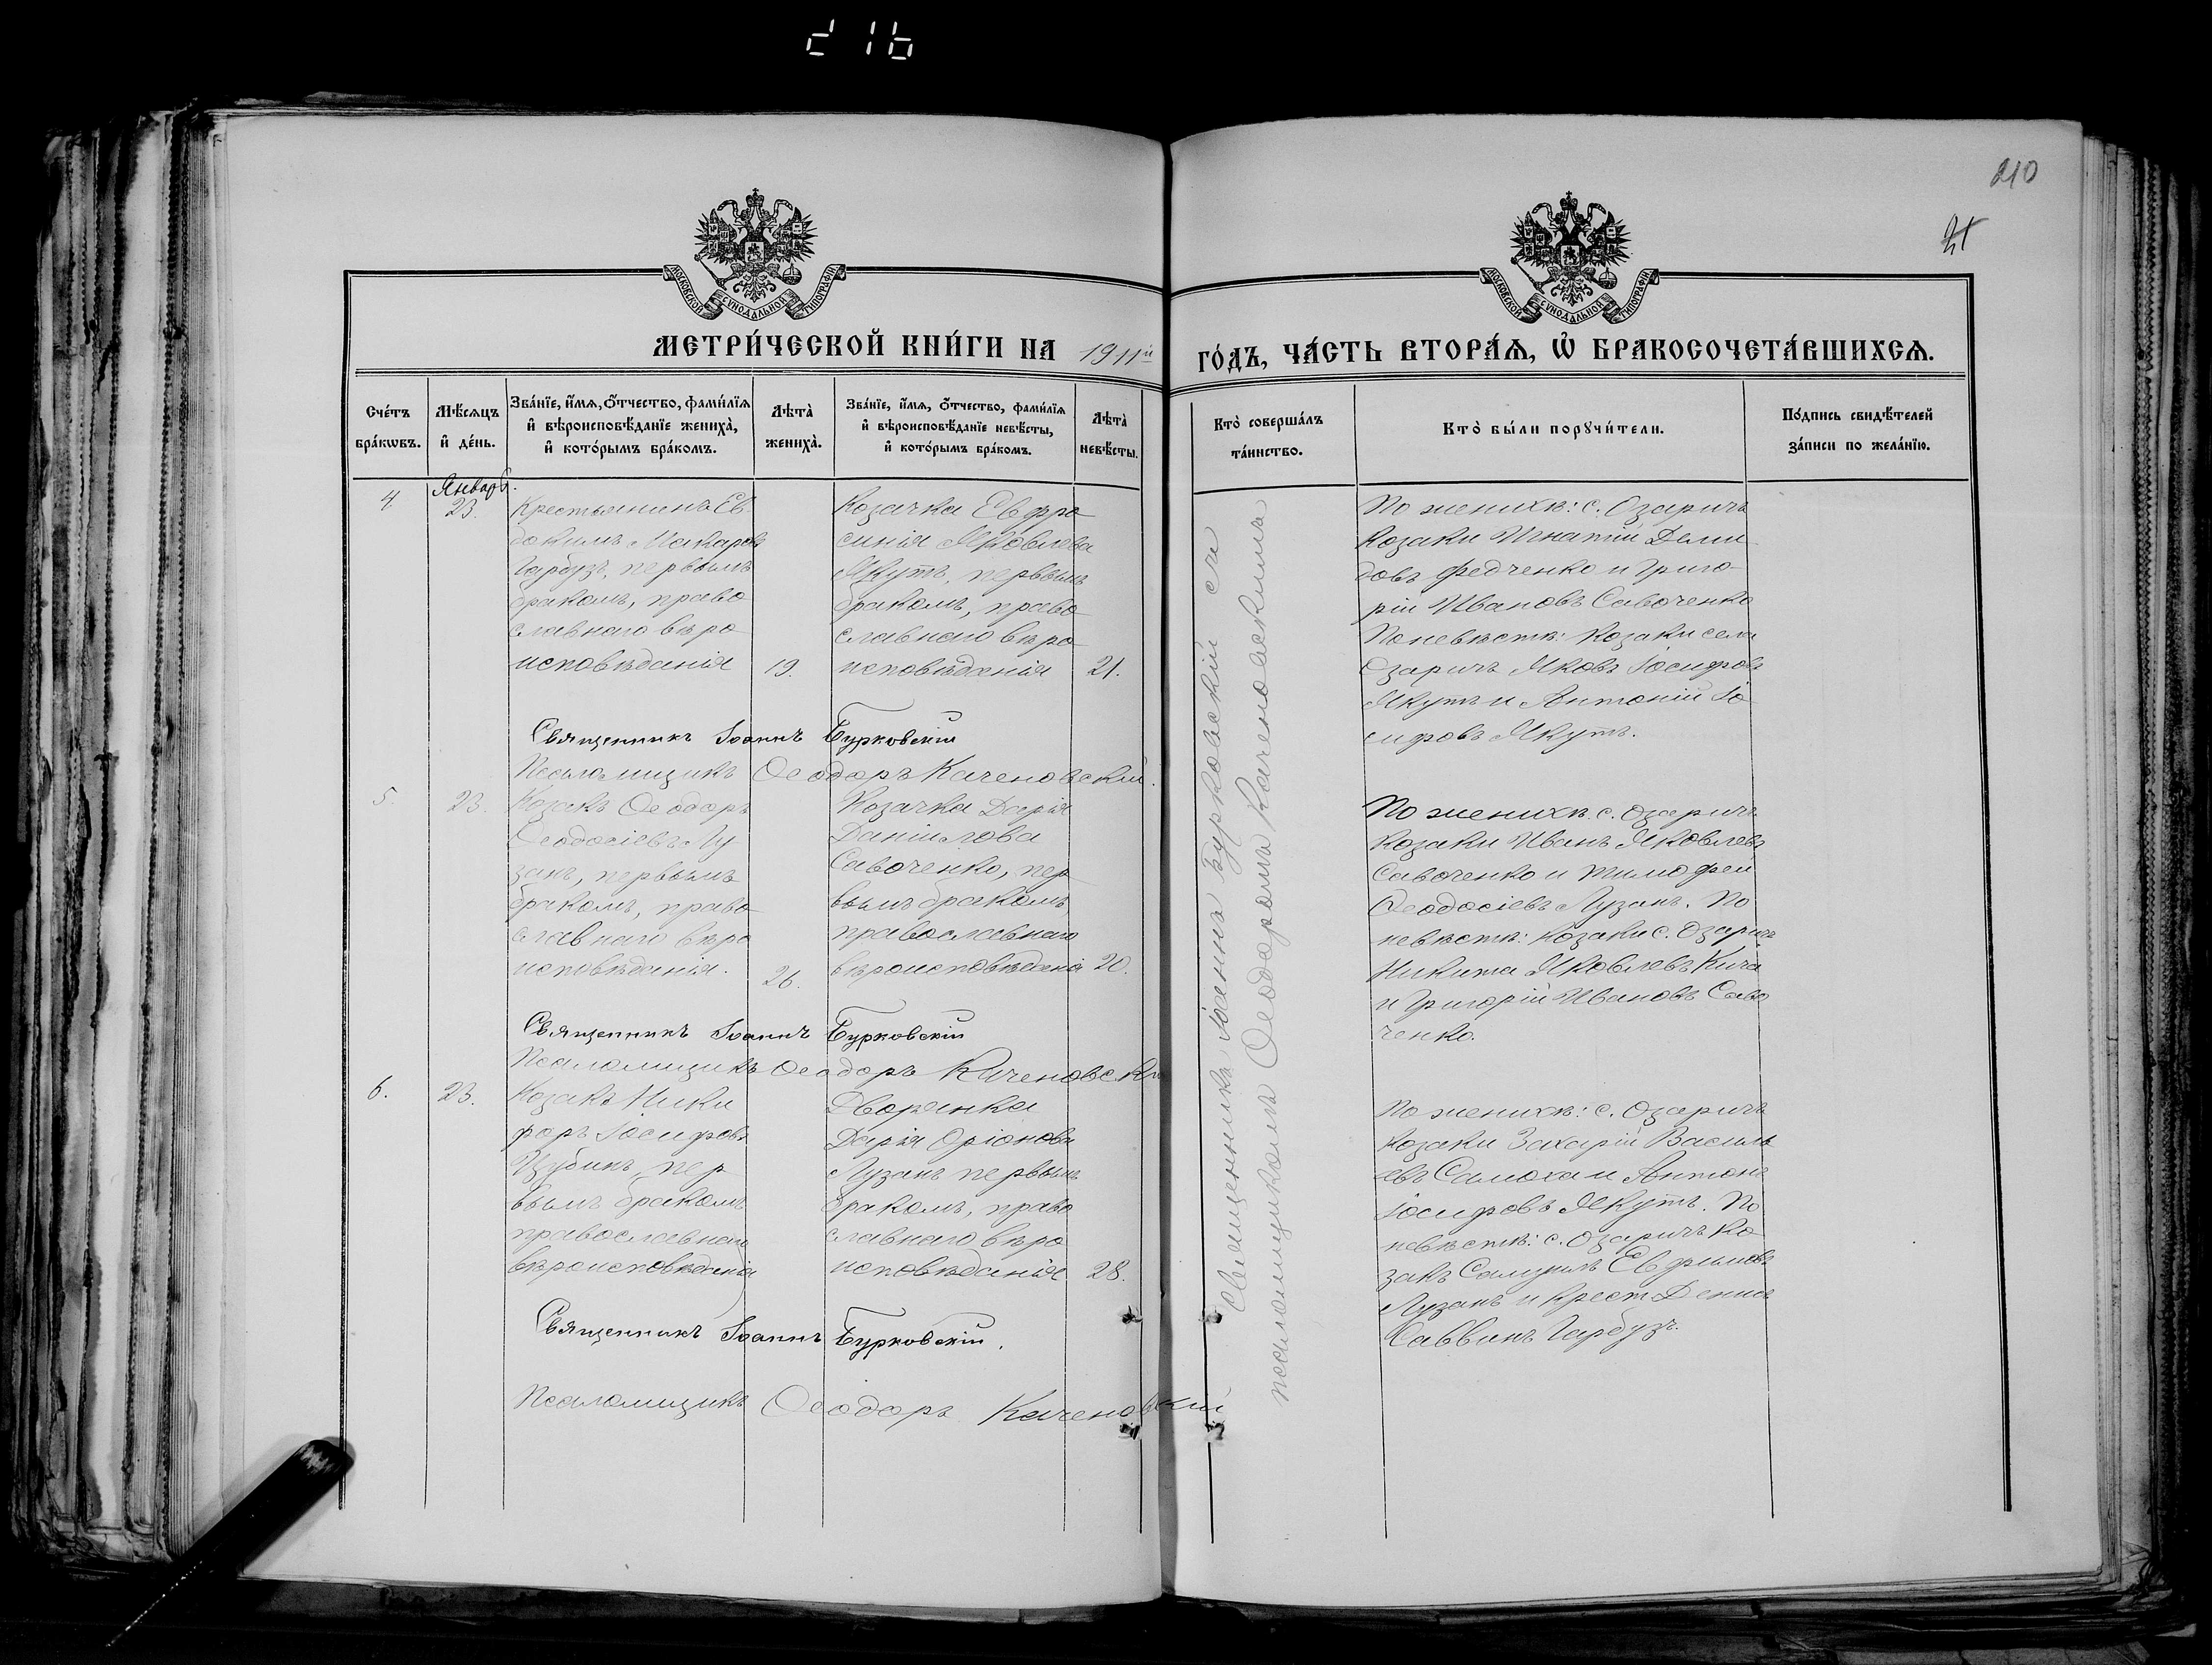 216
210
21
МОСКОВСКОЙ СУНОДАЛЬНОЙ ТИПОГРАФІИ
МОСКОВСКОЙ СУНОДАЛЬНОЙ ТИПОГРАФІИ
МЕТРИ́ЧЕСКОЙ КНИ́ГИ НА 1911й
ГО́ДЪ, ЧА́СТЬ ВТОРА́Ѧ, Ѽ БРАКОСОЧЕТА́ВШИХСѦ.
Сче́тъ
бра́кѡвъ.
Мѣ́сѧцъ
и҆ де́нь.
Зва́нїе, и҆́мѧ, ѻ҆́тчество, фами́лїѧ
и҆ вѣроисповѣ́данїе жениха̀,
и҆ кото́рымъ бра́комъ.
Лѣта̀
жениха̀.
Зва́нїе, и҆́мѧ, ѻ҆́тчество, фами́лїѧ
и҆ вѣроисповѣ́данїе невѣ́сты,
и҆ кото́рымъ бра́комъ.
Лѣта̀
невѣ́сты.
Кто̀ соверша́лъ
та́инство.
Кто̀ бы́ли порꙋчи́тели.
По́дпись свидѣ́телей
за́писи по жела́нїю.
4
Январь.
23.
Крестьянинъ Ев
докимъ Макаровъ
Гарбузъ, первымъ
бракомъ, право
славнаго веро
исповѣданія
19.
Козачка Евфро
синія Яковлева
Якутъ, первымъ
бракомъ, право
славнаго вѣро
исповѣданія
21.
По женихѣ: с. Озаричъ
Козаки Игнатій Деми
довъ Федченко и Григо
рій Ивановъ Савоченко
По невѣстѣ: Козаки села
Озаричъ Яковъ Іосифовъ
Якутъ и Антоній Іо
сифовъ Якутъ.
Священникъ Іоаннъ Бурковскій
Псаломщикъ Ѳеодоръ Каченовскій.
5.
23.
Козакъ Ѳеодоръ
Ѳеодосіевъ Лу
занъ, первымъ
бракомъ, право
славнаго вѣро
исповѣданія.
26.
Козачка Дарія
Даніилова
Савоченко, пер
вымъ бракомъ,
православнаго
вѣроисповѣданія
20.
По женихѣ: с. Озаричъ
Козаки Иванъ Яковлевъ
Савоченко и Тимофей
Ѳеодосіевъ Лузанъ. По
невѣстѣ: Козаки с. Озаричъ
Никита Яковлевъ Кича
и Григорій Ивановъ Саво
ченко.
Священникъ Іоаннъ Бурковскій
Псаломщикъ Ѳеодоръ Каченовскій
6.
23.
Козакъ Ники
форъ Іосифовъ
пер
вымъ бракомъ
православнаго
вѣроисповѣданія
Дворянка
Дарія Оріонова
Лузанъ первымъ
бракомъ, право
славнаго вѣро
исповѣданія
28.
По женихѣ: с. Озаричъ
Козаки Захарій Василь
евъ Самоха и Антонъ
Іосифовъ Якутъ. По
невѣстѣ: с. Озаричъ Ко
закъ Самуилъ Евфимовъ
Лузанъ и Крест. Денисъ
Саввинъ Гарбузъ.
Священникъ Іоаннъ Бурковскій.
Псаломщикъ Ѳеодоръ Каченовскій
Священникъ Іоаннъ Бурковскій съ
псаломщикомъ Ѳеодоромъ Каченовскимъ